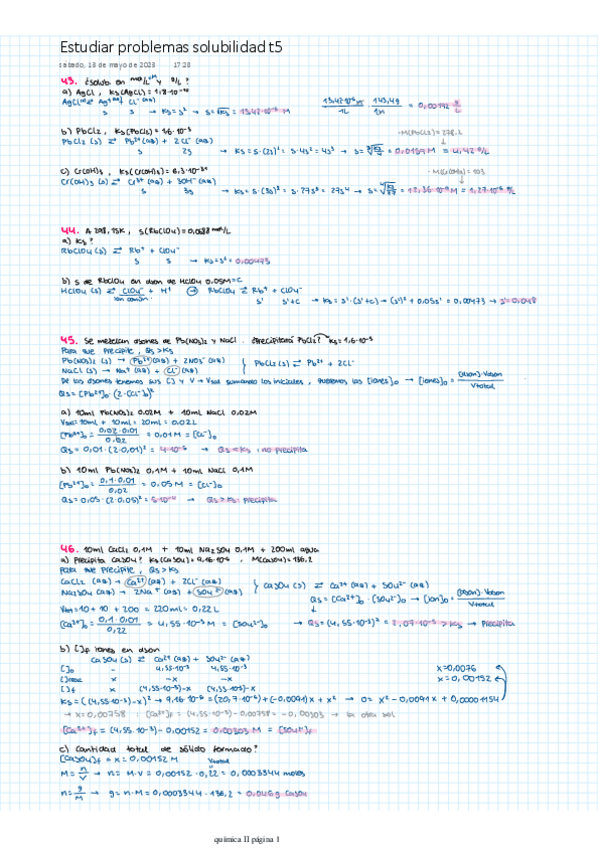 Estudiar problemas solubilidad t5
sábado, 13 de mayo de 2023 17:23
43. ¿solub en mol/L = M y g/L?
a) AgCl, Ks(AgCl) = 1,8·10⁻¹⁰
AgCl ⇄ Ag⁺ Cl⁻ (aq)
s s → Ks = s² → s = √Ks = 13,42·10⁻⁶ M
b) PbCl₂, Ks(PbCl₂) = 1,6·10⁻⁵
-M(PbCl₂) = 278,2
PbCl₂ (s) ⇄ Pb²⁺ (aq) + 2 Cl⁻ (aq)
s 2s → Ks = s·(2s)² = s·4s² = 4s³
c) Cr(OH)₃, Ks(Cr(OH)₃) = 6,3·10⁻³¹
-M(Cr(OH)₃) = 103
Cr(OH)₃ (s) ⇄ Cr³⁺ (aq) + 3OH⁻ (aq)
s 3s → Ks = s·(3s)³ = s·27s³ = 27s⁴
44. A 298,15K, s(RbClO₄) =
a) Ks?
RbClO₄ (s) ⇄ Rb⁺ + ClO₄⁻
s s → Ks = s² = 0,00473
b) s de RbClO₄ en dson de HClO₄ 0,05M = C
HClO₄ (s) ⇄ ClO₄⁻ + H⁺ → RbClO₄ ⇄ Rb⁺ + ClO₄⁻
ion común s' s'+c → Ks = s'·(s'+c) → (s')² + 0,05s' = 0,00473 → s' = 0,048
45. Se mezclan dsones de Pb(NO₃)₂ y NaCl. ¿Precipitará PbCl₂? Ks = 1,6·10⁻⁵
Para que precipite, Qs > Ks
Pb(NO₃)₂ (s) → Pb²⁺ (aq) + 2NO₃⁻ (aq)
PbCl₂ (s) ⇄ Pb²⁺ + 2Cl⁻
NaCl (s) → Na⁺ (aq) + Cl⁻ (aq)
De las dsones tenemos sus [] y V → Vsol sumando los iniciales, queremos las [iones]₀ → [iones]₀ =
Qs = [Pb²⁺]₀·(2·[Cl⁻]₀)²
a) 10ml Pb(NO₃)₂ 0,02M + 10ml NaCl 0,02M
= 10ml + 10ml = 20ml = 0,02L
[Pb²⁺]₀ = 0,02·0,01 / 0,02 = 0,01M = [Cl⁻]₀
Qs = 0,01·(2·0,01)² = 4·10⁻⁶ → Qs < Ks : no precipita
b) 10ml Pb(NO₃)₂ 0,1M + 10ml NaCl 0,1M
[Pb²⁺]₀ = 0,1·0,01 / 0,02 = 0,05M = [Cl⁻]₀
Qs = 0,05·(2·0,05)² = 5·10⁻⁴ → Qs > Ks : precipita
46. 10ml CaCl₂ 0,1M + 10ml Na₂SO₄ 0,1M + 200ml agua
a) Precipita CaSO₄? Ks(CaSO₄) = 9,16·10⁻⁶, M(CaSO₄) = 136,2
Para que precipite, Qs > Ks
CaCl₂ (aq) → Ca²⁺ (aq) + 2Cl⁻ (aq)
CaSO₄ (s) ⇄ Ca²⁺ (aq) + SO₄²⁻ (aq)
Na₂SO₄ (aq) → 2Na⁺ (aq) + SO₄²⁻ (aq)
Qs = [Ca²⁺]₀·[SO₄²⁻]₀ → [ion]₀ =
= 10 + 10 + 200 = 220ml = 0,22L
[Ca²⁺]₀ = 0,1·0,01 / 0,22 = 4,55·10⁻³ M = [SO₄²⁻]₀ → Qs = (4,55·10⁻³)² = 2,07·10⁻⁵ > Ks → Precipita
b) []f iones en dson
CaSO₄ (s) ⇄ Ca²⁺ (aq) + SO₄²⁻ (aq)
[]₀ - 4,55·10⁻³ 4,55·10⁻³
x=0,0076
x -x -x
x=0,00152
[]f x (4,55·10⁻³)-x (4,55·10⁻³)-x
Ks = ((4,55·10⁻³)-x)² → 9,16·10⁻⁶ = (20,7·10⁻⁶) + (-0,0091)x + x² → 0 = x² - 0,0091x + 0,00001154
→ x = 0,00758 : [Ca²⁺]f = (4,55·10⁻³) - 0,00758 = -0,00303 → la otra sol
[Ca²⁺]f = (4,55·10⁻³) - 0,00152 = 0,00303 M = [SO₄²⁻]f
c) Cantidad total de sólido formado?
[CaSO₄]f = x = 0,00152 M
M = n/V → n = M·V = 0,00152·0,22 = 0,0003344 moles
n = g/M → g = n·M = 0,0003344·136,2 = 0,046g CaSO₄
química II página 1